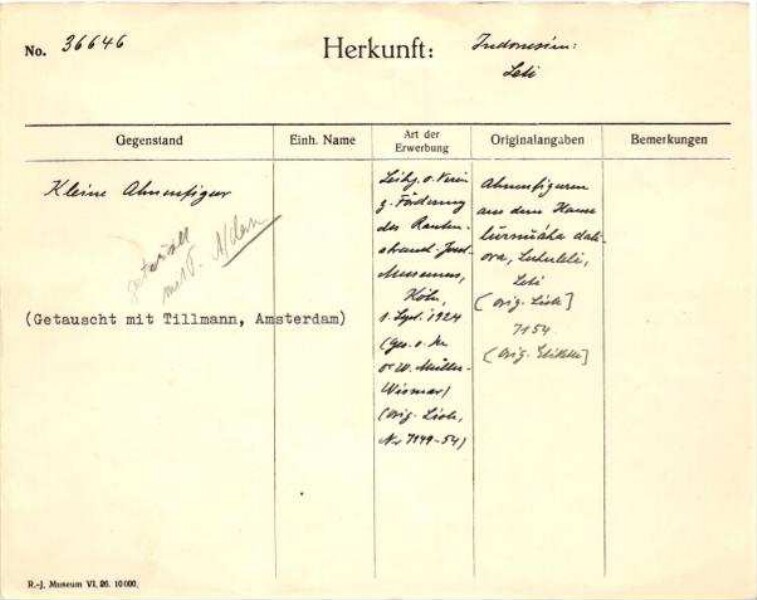 No. 36646
Herkunft: Indonesien:
Leti
Gegenstand
Einh. Name
Art der
Erwerbung
Originalangaben
Bemerkungen
Kleine Ahnenfigur
mit A/dam
(Getauscht mit Tillmann, Amsterdam)
Leihg. v. Verein
z. Förderung
des Rauten-
strauch-Joest
Museums,
Köln,
1. Sept. 1924
(Ges. v.
Dr W. Müller-
Wismar)
(orig. Liste,
Nr 7149-54)
Ahnenfiguren
aus dem Hause
lurnuáha dati
ora, Luhuleli,
Leti
(orig. Liste]
7154
(orig. Etikette]
R.-J. Museum VI. 26. 10000.